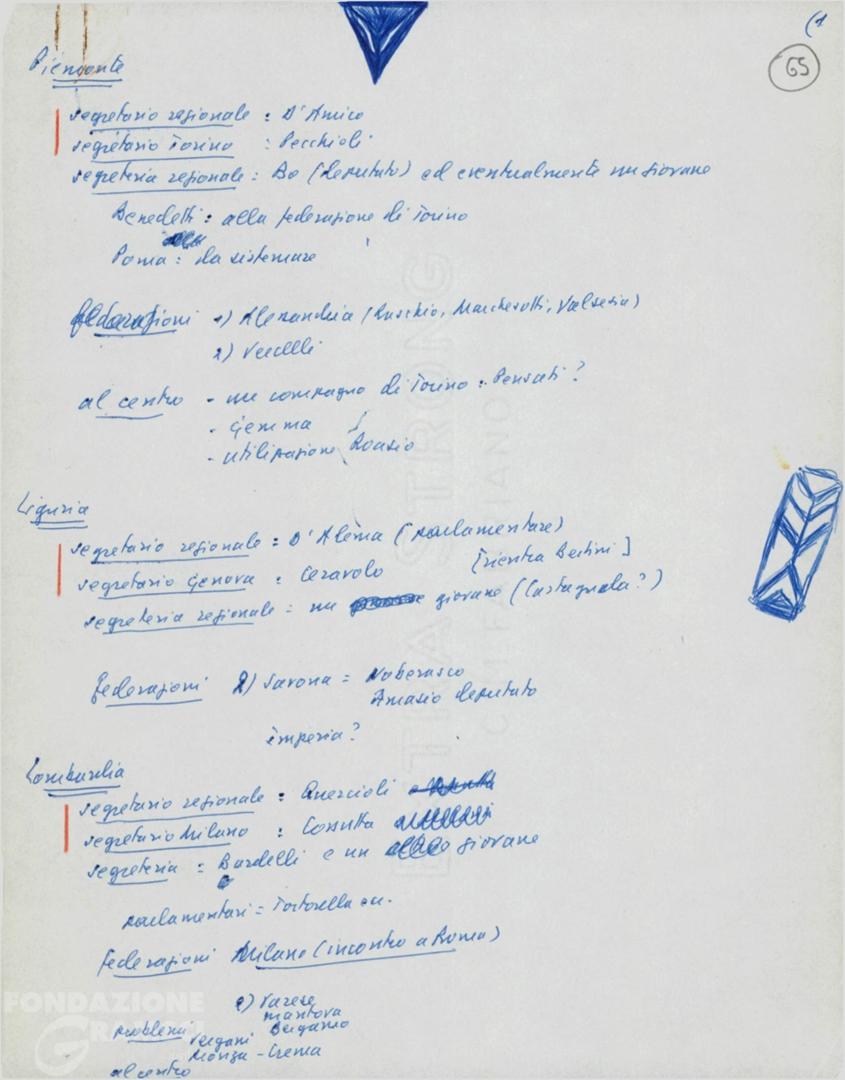 (1
65
Piemonte
segretario regionale : D'Amico
segretario Torino : Pecchioli
segreteria regionale : Bo (deputato) ed eventualmente un giovane
Benedetti : alla federazione di Torino
Poma : da sistemare
federazioni 1) Alessandria (Ruschio, Marchesotti, Valsesia)
2) Vercelli
al centro - un compagno di Torino : Pensati ?
- Gemma
- utilizzazione Roasio
Liguria
segretario regionale = D'Alema (parlamentare)
segretario Genova : Ceravolo [rientra Bertini]
segreteria regionale = un giovane (Castagnola ?)
federazioni 2) Savona = Noberasco
Amasio deputato
imperia ?
Lombardia
segretario regionale : Quercioli
segretario Milano : Cossutta
segreteria = Bardelli e un giovane
parlamentari = Tortorella ecc.
federazioni Milano (incontro a Roma)
e) Varese
mantova
problemi Bergamo
Vergani
Monza - Crema
al centro
FONDAZIONE
BETTIA STRONG